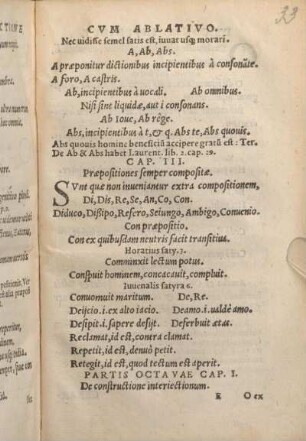 33
CVM ABLATIVO.
Nec uidisse semel satis est, iuuat usq; morari.
A, Ab, Abs.
A præponitur dictionibus incipientibus à consonāte.
A foro, A castris.
Ab, incipientibus à uocali, Ab omnibus.
Nisi sint liquidæ, aut i consonans.
Ab Ioue, Ab rege.
Abs, incipientibus à t, & q. Abs te, Abs quouis.
Abs quouis homine beneficiū accipere gratū est: Ter.
De Ab & Abs habet Laurent. lib. 2. cap. 29.
CAP. III.
Præpositiones semper compositæ.
SVnt quæ non inueniuntur extra compositionem,
Di, Dis, Re, Se, An, Co, Con.
Diduco, Dissipo, Resero, Seiungo, Ambigo, Conuenio.
Con præpositio.
Con ex quibusdam neutris facit transitiua.
Horatius saty. 3.
Comminxit lectum potus.
Conspuit hominem, concacauit, compluit.
Iuuenalis satyra 6.
Conuomuit maritum. De, Re.
Deijcio .i. ex alto iacio. Deamo .i. ualdè amo.
Desipit .i. sapere desijt. Deferbuit ætas.
Reclamat, id est, contra clamat.
Repetit, id est, denuò petit.
Retegit, id est, quod tectum est aperit.
PARTIS OCTAVAE CAP. I.
De constructione interiectionum.
E O ex